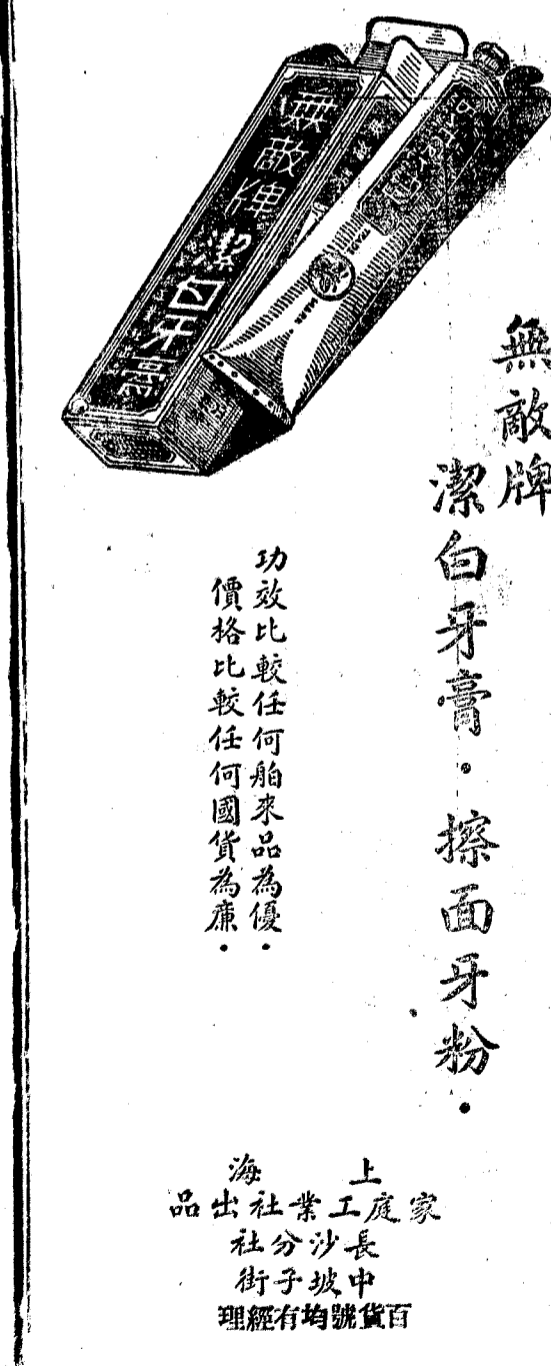 無敵牌
潔白牙膏．擦面牙粉．
無敵牌潔白牙膏
功效比較任何舶來品為優．
價格比較任何國貨為廉．
上海
家庭工業社出品
長沙分社
中坡子街
百貨號均有經理